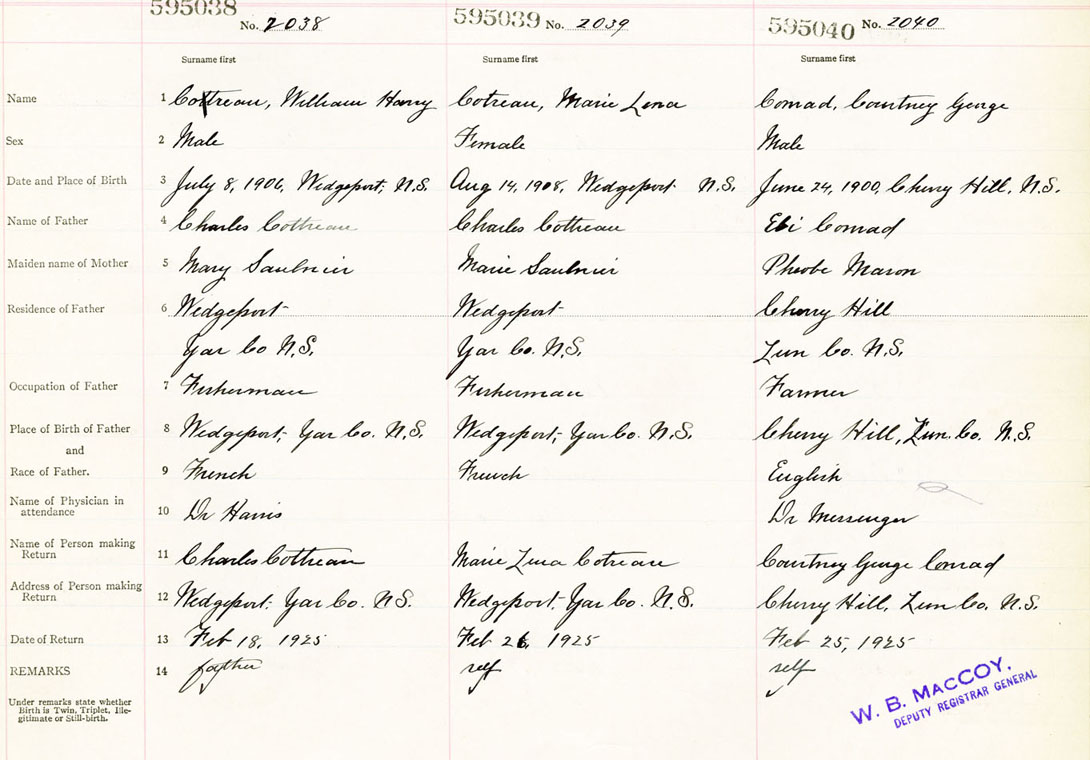 595038 No. 2038 595039 No. 2039 595040 No. 2040
Surname first Surname first Surname first
Name 1 Cottreau, William Harry Cotreau, Marie Lena Conrad, Courtney George
Sex 2 Male Female Male
Date and Place of Birth 3 July 8, 1906, Wedgeport, N.S. Aug 14, 1908, Wedgeport N.S. June 24, 1900, Cherry Hill, N.S.
Name of Father 4 Charles Cottreau Charles Cottreau Eli Conrad
Maiden name of Mother 5 Mary Saulnier Marie Saulnier Pheobe Mason
Residence of Father 6 Wedgeport Wedgeport Cherry Hill
Yar Co N.S. Yar Co. N.S. Lun Co. N.S.
Occupation of Father 7 Fisherman Fisherman Farmer
Place of Birth of Father 8 Wedgeport, Yar Co. N.S. Wedgeport, Yar Co. N.S. Cherry Hill, Lun. Co. N.S.
and
Race of Father. 9 French French English
Name of Physician in
attendance 10 Dr Harris Dr Messenger
Name of Person making
Return 11 Charles Cottreau Marie Lena Cotreau Courtney George Conrad
Address of Person making
Return 12 Wedgeport, Yar Co. N.S. Wedgeport, Yar Co. N.S. Cherry Hill, Lun Co. N.S.
Date of Return 13 Feb 18, 1925 Feb 26, 1925 Feb 25, 1925
REMARKS 14 father self self
Under remarks state whether
Birth is Twin, Triplet, Ille-
gitimate or Still-birth.
W. B. MACCOY,
DEPUTY REGISTRAR GENERAL